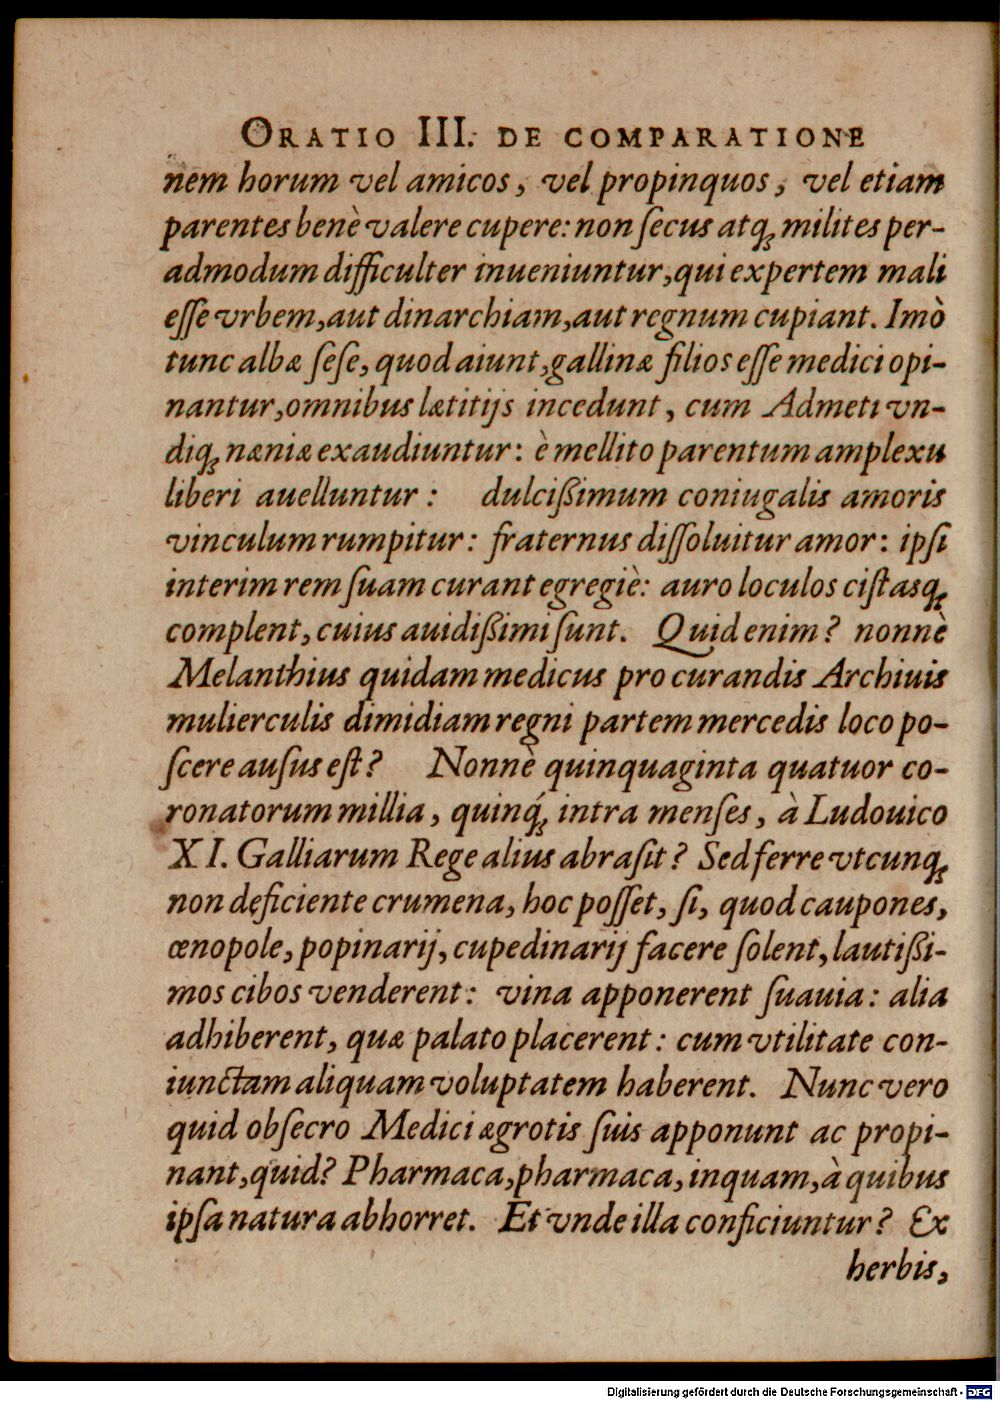 ORATIO III. DE COMPARATIONE
nem horum vel amicos, vel propinquos, vel etiam
parentes benè valere cupere: non ſecus atq; milites per-
admodum difficulter inueniuntur, qui expertem mali
eſſe vrbem, aut dinarchiam, aut regnum cupiant. Imò
tunc albæ ſeſe, quod aiunt, gallinæ filios eſſe medici opi-
nantur, omnibus lætitijs incedunt, cum Admeti vn-
diq; næniæ exaudiuntur: è mellito parentum amplexu
liberi auelluntur: dulcißimum coniugalis amoris
vinculum rumpitur: fraternus diſſoluitur amor: ipſi
interim rem ſuam curant egregiè: auro loculos ciſtasq;
complent, cuius auidißimi ſunt. Quid enim? nonnè
Melanthius quidam medicus pro curandis Archiuis
mulierculis dimidiam regni partem mercedis loco po-
ſcere auſus eſt? Nonnè quinquaginta quatuor co-
ronatorum millia, quinq́; intra menſes, à Ludouico
XI. Galliarum Rege alius abraſit? Sed ferre vtcunq;
non deficiente crumena, hoc poſſet, ſi, quod caupones,
œnopole, popinarij, cupedinarij facere ſolent, lautißi-
mos cibos venderent: vina apponerent ſuauia: alia
adhiberent, quæ palato placerent: cum vtilitate con-
iunctam aliquam voluptatem haberent. Nunc vero
quid obſecro Medici ægrotis ſuis apponunt ac propi-
nant, quid? Pharmaca, pharmaca, inquam, à quibus
ipſa natura abhorret. Et vnde illa conficiuntur? Ex
herbis,
Digitalisierung gefördert durch die Deutsche Forschungsgemeinschaft - DFG